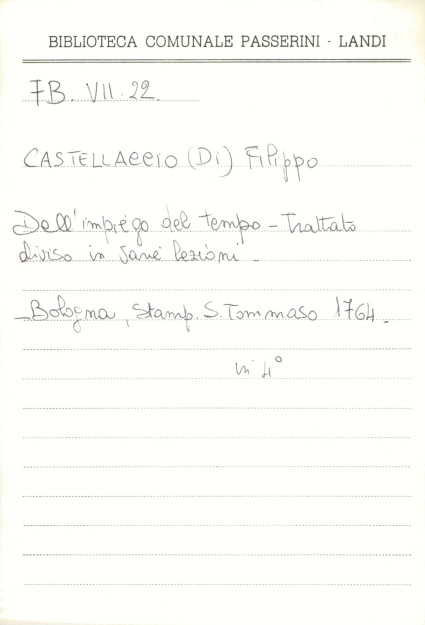 BIBLIOTECA COMUNALE PASSERINI - LANDI
7B. VII. 22.
CASTELLACCIO (Di) Filippo
Dell'impiego del tempo - Trattato
diviso in varie lezioni -
Bologna, Stamp. S. Tommaso 1764.
in 4°